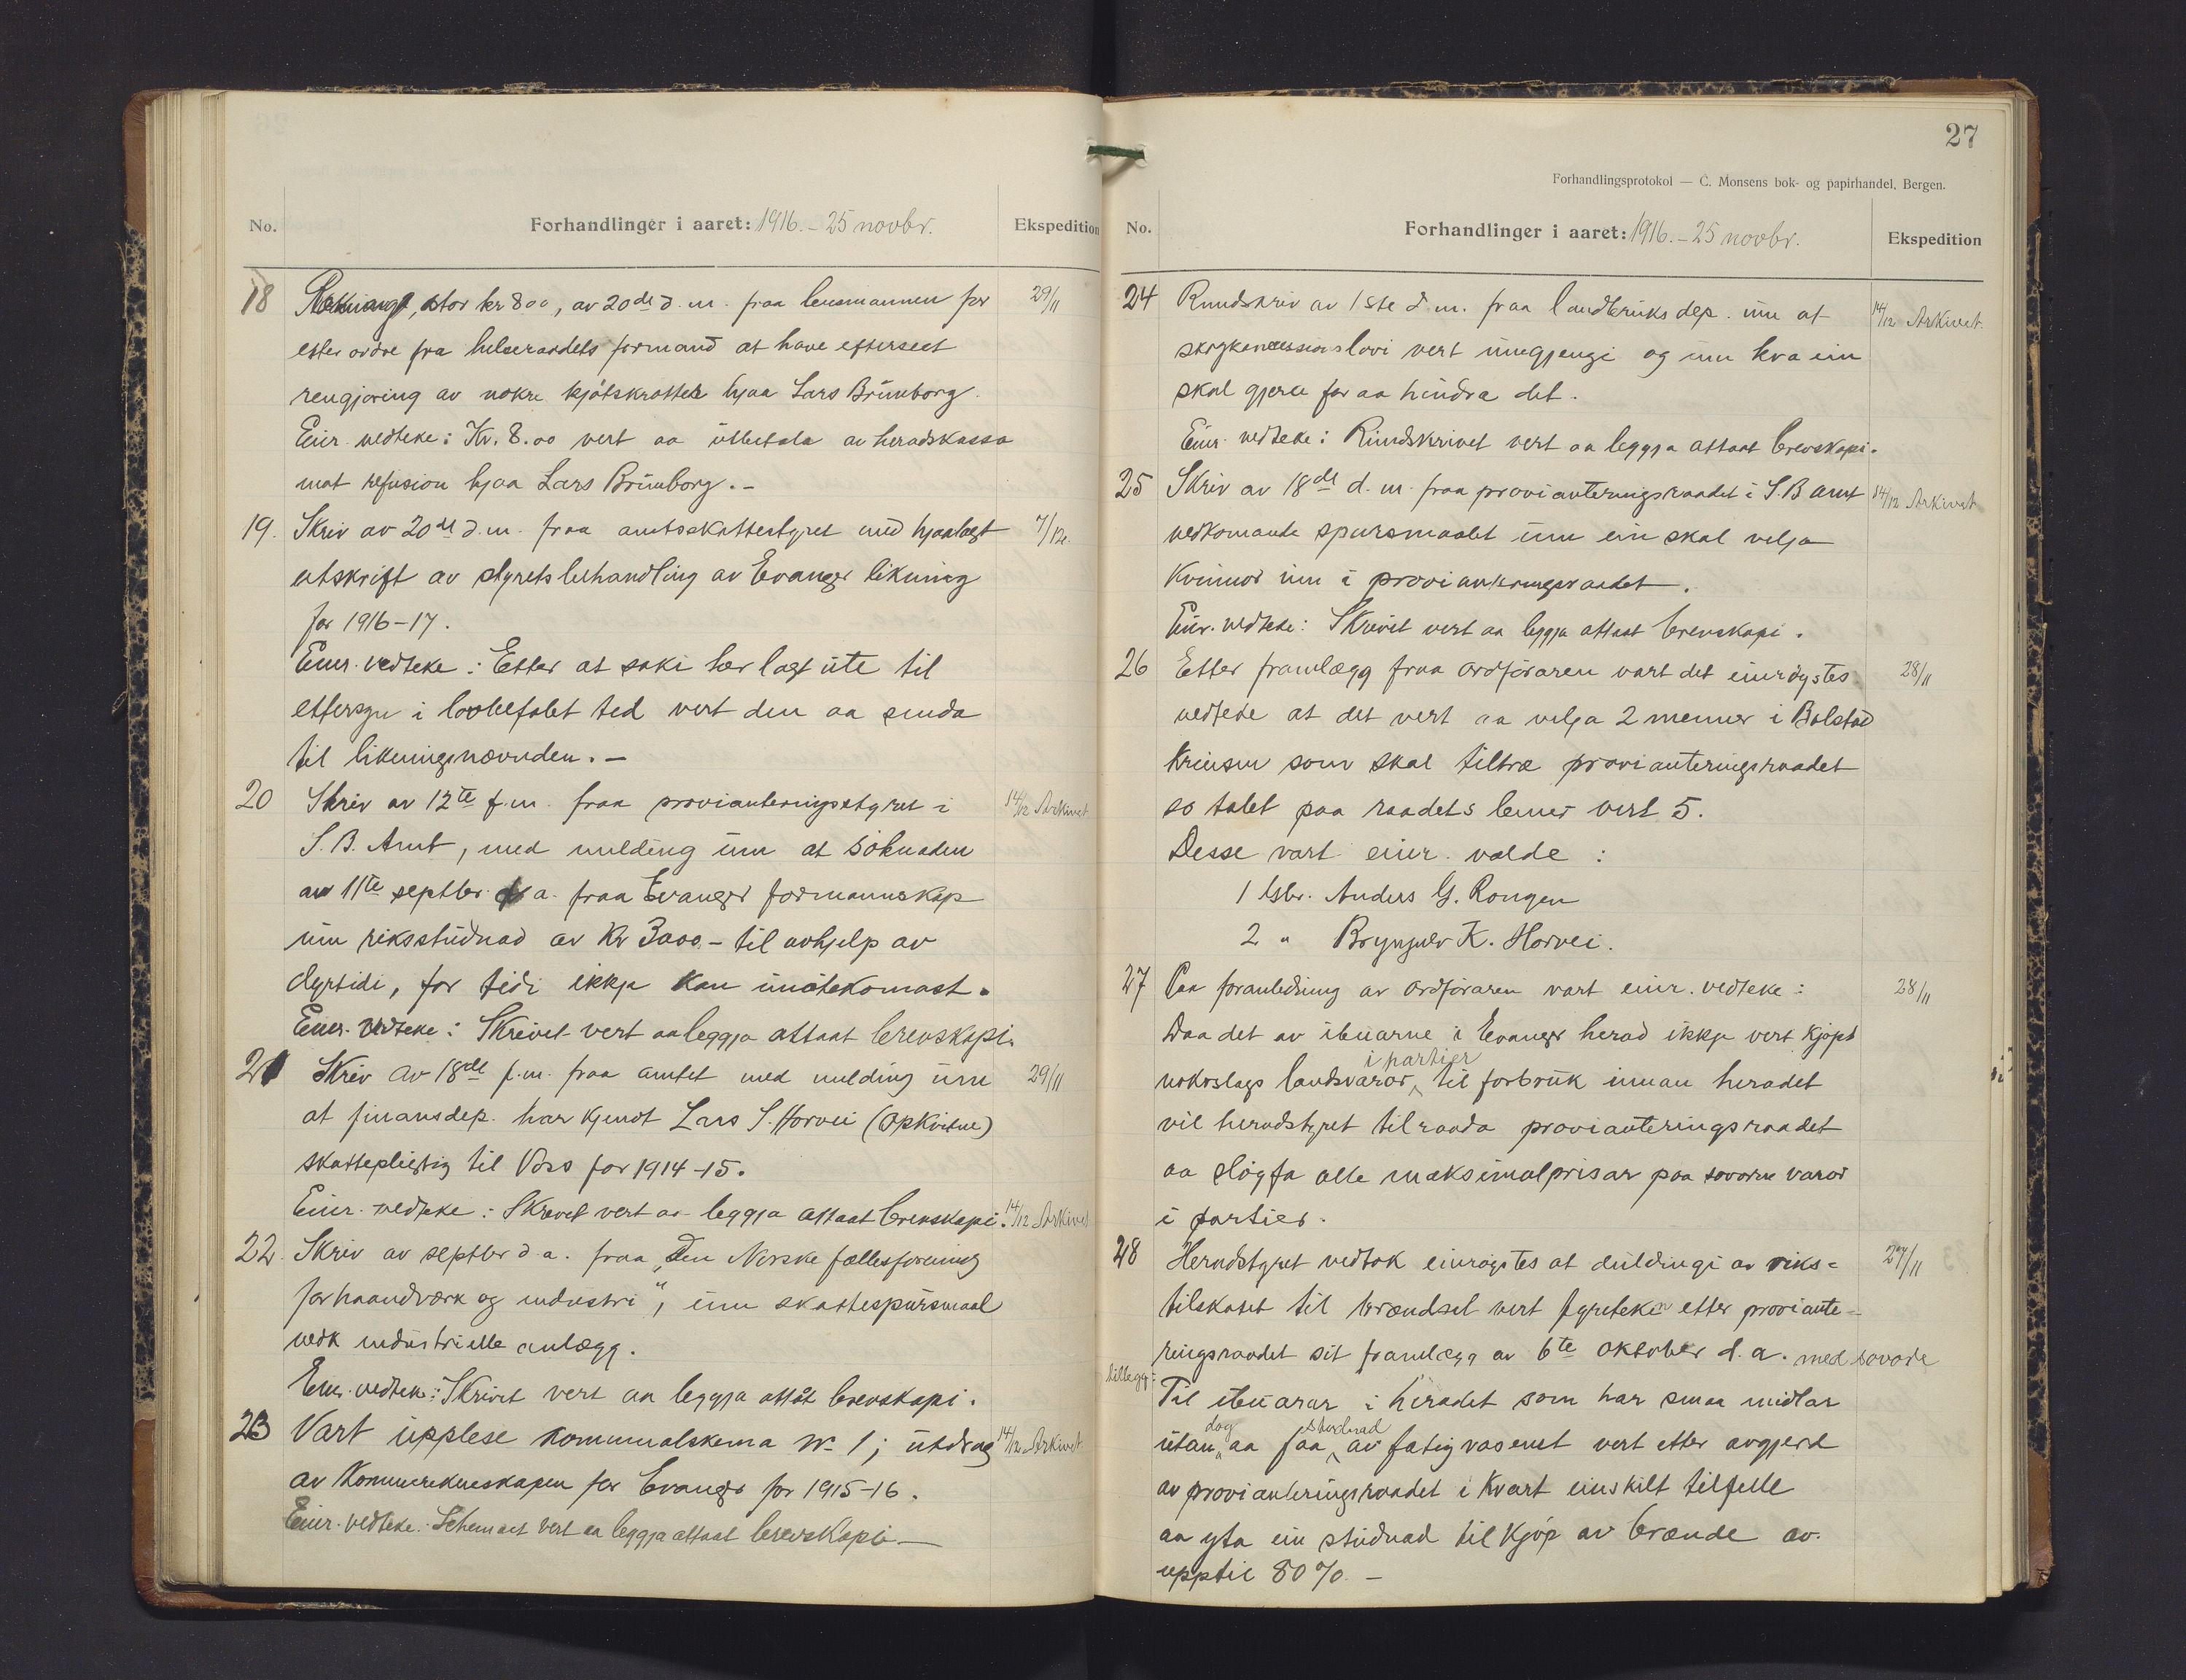 No. Forhandlinger i aaret: 1916. – 25 novbr. Ekspedition
18 Rekning, stor kr 8oo, av 20de d. m. fraa lensmannen for 29/11
etter ordre fra helseraadets formand at have efterseet
rengjøring av nokre kjøtskrotter hjaa Lars Brünborg.
Einr. vedteke: Kr. 8.oo vert aa ütbetala av heradskassa
mot refusion hjaa Lars Brünborg. –
19. Skriv av 20de d.m. fraa amtsskattestyret med hjaalagt 7/12.
utskrift av styrets behandling av Evanger likning
for 1916–17.
Einr. vedteke: Etter at saki har lagt üte til
ettersyn i lovbefalet tid vert den aa senda
til likningsnævnden. –
20 Skriv av 12te f.m. fraa provianteringsstyret i 14/12 Arkivet
S. B. Amt, med melding üm at søknaden
av 11te septbr. d. a. fraa Evanger formannskap
üm riksstüdnad av Kr 3000.– til avhjelp av
dyrtidi, for tidi ikkje kan imøtekomast.
Einr. vedteke: Skrivet vert aa leggja attaat brevskapi.
21 Skriv av 18de f.m. fraa amtet med melding üm 29/11
at finansdep. har kjendt Lars S. Horvei (Opkvitne)
skattepligtig til Voss for 1914–15.
Einr. vedteke: Skrivet vert aa leggja attaat brevskapi. 14/12 Arkivet
22. Skriv av septbr d. a. fraa „Den Norske fællesforening
for haandværk og industri“, üm skattespürsmaal
vedk industrielle anlægg.
Einr. vedteke: Skrivet vert aa leggja attåt brevskapi.
23 Vart üpplese kommunalskema No 1; ütdrag 14/12 Arkivet
av Kommunerekneskapen for Evanger for 1915–16.
Einr. vedteke: Schemaet vert aa leggja attaat brevskapi –
27
Forhandlingsprotokol — C. Monsens bok- og papirhandel, Bergen.
No. Forhandlinger i aaret: 1916. – 25 novbr. Ekspedition
24 Rundskriv av 1ste d. m. fraa landbruksdep. üm at 14/12 Arkivet.
skogkoncessionslovi vert ümgjengi og üm kva ein
skal gjera for aa hindra det.
Einr. vedteke: Ründskrivet vert aa leggja attaat brevskapi.
25 Skriv av 18de d. m. fraa provianteringsraadet i S. B amt 14/12 Arkivet
vedkomande spursmaalet üm ein skal velja
Kvinnor inn i provianteringsraadet.
Einr. vedteke: Skrivet vert aa leggja attaat brevskapi.
26 Etter framlegg fraa ordføraren vart det einrøystes 28/11
vedteke at det vert aa velja 2 menner i Bolstad
krinsen som skal tiltræ provianteringsraadet
so talet paa raadets lemer vert 5.
Desse vart einr. valde:
1 Gbr. Anders G. Rongen
2 „ Brynjulv K. Horvei.
27 Paa foranledning av ordføraren vart einr. vedteke: 28/11
Daa det av ibuarne i Evanger herad ikkje vert kjøpt
i partier
nokoslags landsvaror til forbrük innan heradet
vil heradstyret tilraada provianteringsraadet
aa sløyfa alle maksimalprisar paa sovorne varor
i partier.
28 Heradstyret vedtok einrøystes at düldingi av riks= 27/11
tilskotet til brændsel vert fyreteken etter proviante-
ringsraadet sit framlegg av 6te oktober d. a. med sovore
tillegg:
Til ibüarar i heradet som har smaa midlar
dog studnad
utan aa faa av fatigvæsenet vert etter avgjerd
av provianteringsraadet i kvart einskilt tilfelle
aa yta ein stüdnad til kjøp av brænde av
upptil 80% –